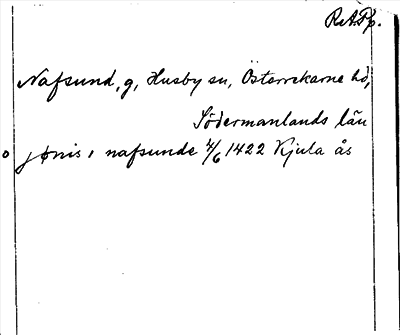 RAPp.
Nafsund, g, Husby sn, Österrekarne hd,
Södermanlands län
jønis i nafsunde 4/6 1422 Kjula ås